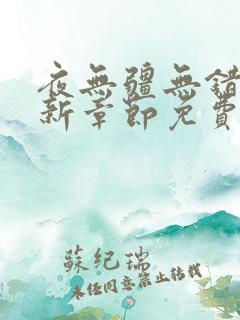 夜無疆無錯
新章節免費
蘇紀瑞
未經同意禁止轉載